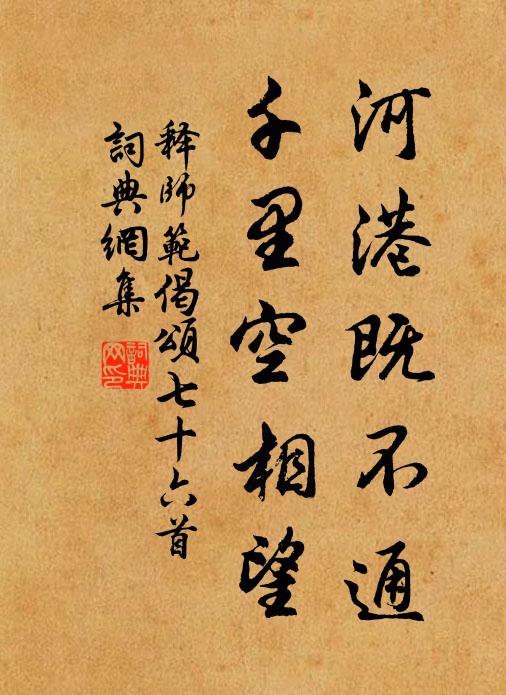 河港既不通
千里空相望
释師範偈頌七十六首
詞典網集
詞典網印